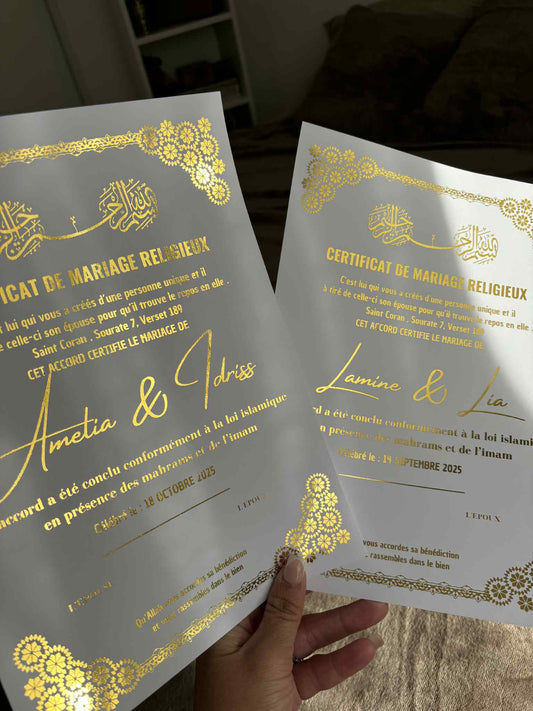 بسم الله الرحمن الرحيم
FICAT DE MARIAGE RELIGIEUX
st lui qui vous a créés d'une personne unique et il
de celle-ci son épouse pour qu'il trouve le repos en elle .
Saint Coran , Sourate 7, Verset 189
CET ACCORD CERTIFIE LE MARIAGE DE
Amelia & Idriss
accord a été conclu conformément à la loi islamique
en présence des mahrams et de l'imam
Célébré le : 18 OCTOBRE 2025
L'EPOUX
Qu'Allah vous accordes sa bénédiction
et vous rassembles dans le bien
بسم الله الرحمن الرحيم
CERTIFICAT DE MARIAGE RELIGIEUX
C'est lui qui vous a créés d'une personne unique et il
à tiré de celle-ci son épouse pour qu'il trouve le repos en elle .
Saint Coran , Sourate 7, Verset 189
CET ACCORD CERTIFIE LE MARIAGE DE
Lamine & Lia
ccord a été conclu conformément à la loi islamique
en présence des mahrams et de l'imam
Célébré le : 19 SEPTEMBRE 2025
L'EPOUX
vous accordes sa bénédiction
rassembles dans le bien